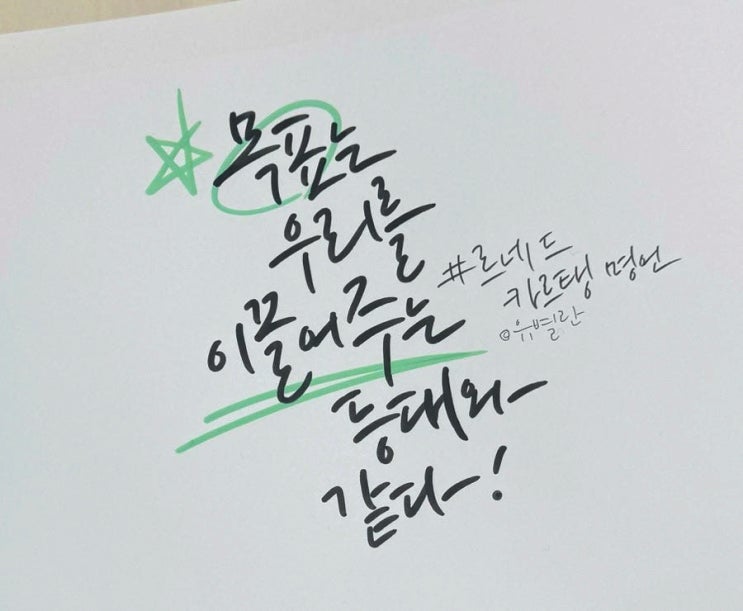 목표는
우리를
이끌어주는
등대와
같다!
#르네드
카르탱 명언
©유별란